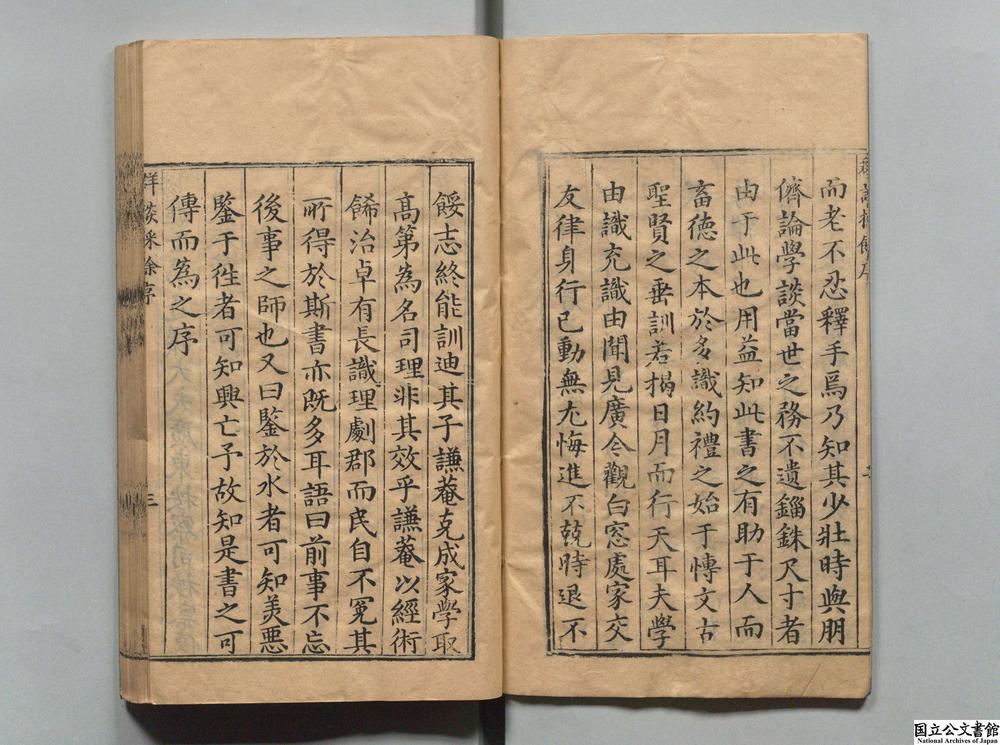 而老不忍釋手焉乃知其少壯時與朋
儕論學談當世之務不遺錙銖尺寸者
由于此也用益知此書之有助于人而
畜德之本於多識約禮之始于博文古
聖賢之垂訓若揭日月而行天耳夫學
由識充識由聞見廣今觀白窓處家交
友律身行已動無尤悔進不兢時退不
餒志終能訓迪其子謙菴克成家學取
高第為名司理非其效乎謙菴以經術
餙治卓有長識理劇郡而民自不冤其
所得於斯書亦既多耳語曰前事不忘
後事之師也又曰鑒於水者可知美惡
鑒于徃者可知興亡予故知是書之可
傳而為之序
群談採餘序
三
国立公文書館
National Archives of Japan